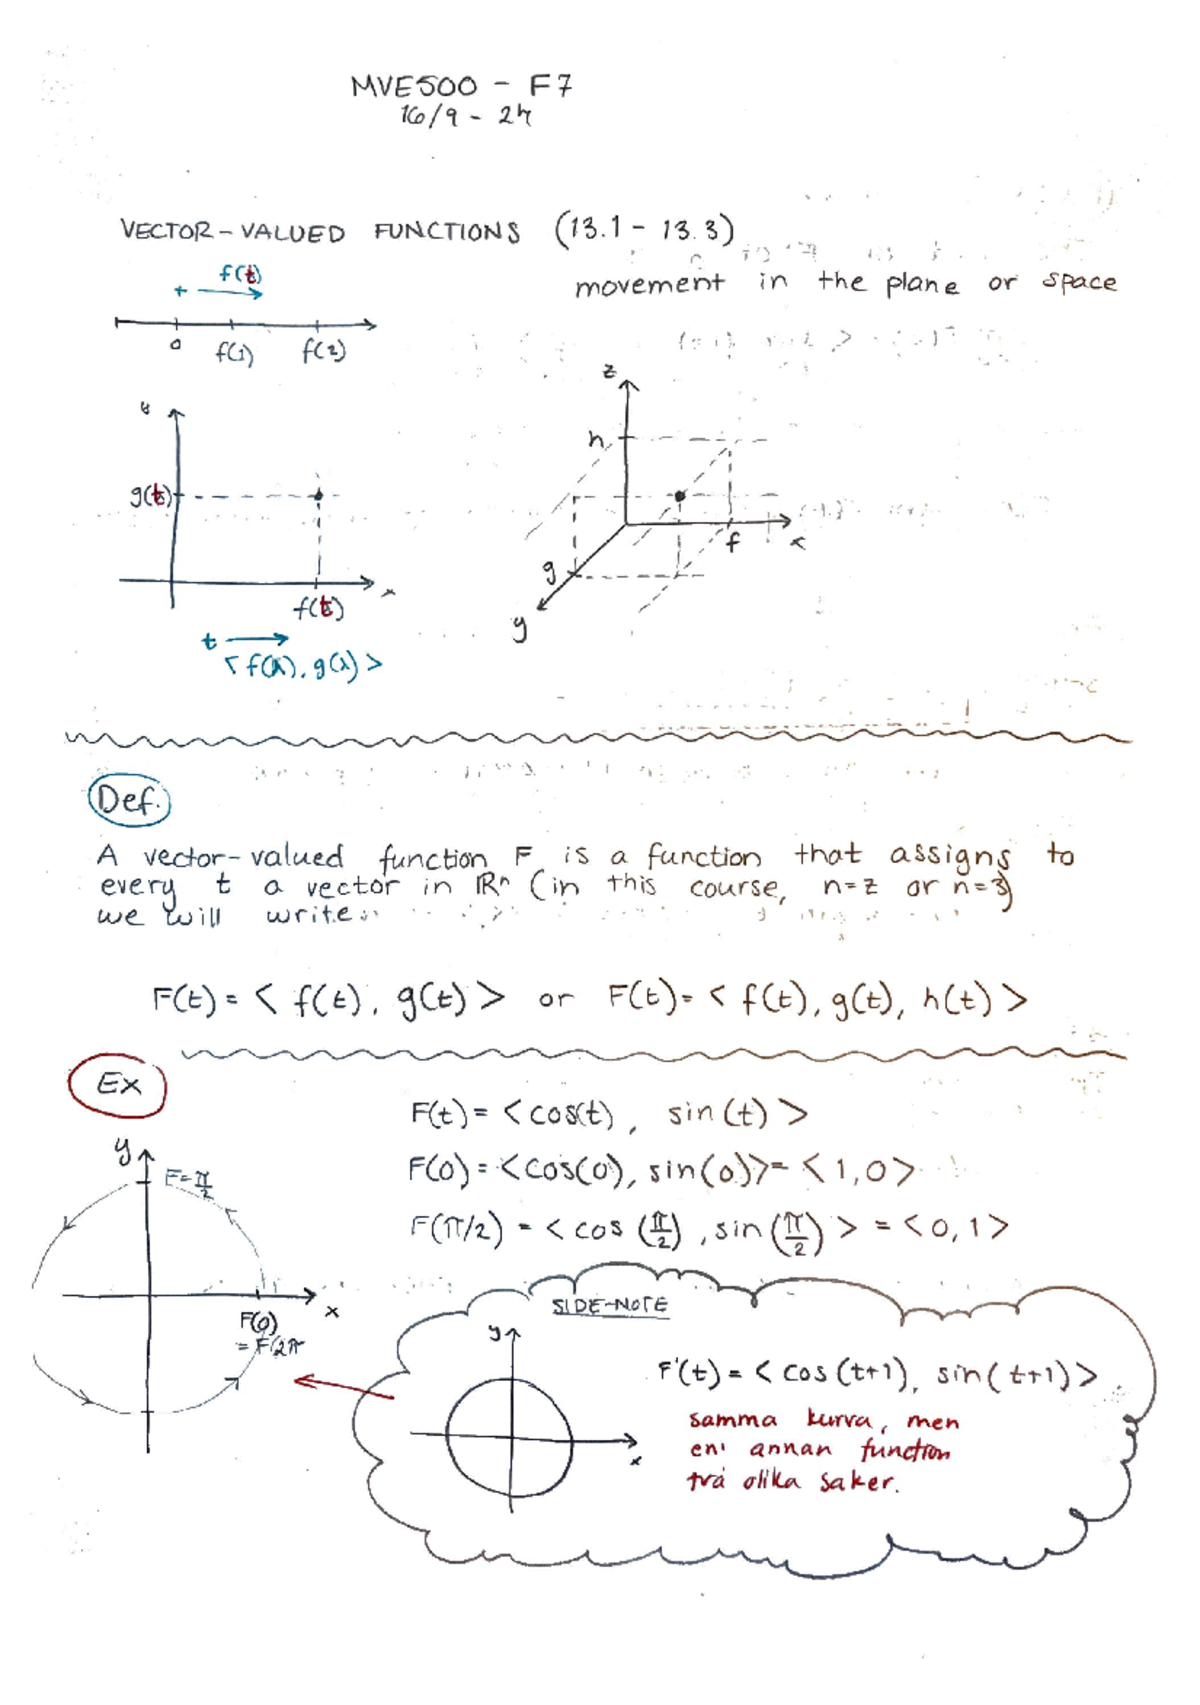 MVE500 - F7
16/9 - 24
VECTOR-VALUED FUNCTIONS (13.1 - 13.3)
f(t)
movement in the plane or space
0 f(1) f(2)
z
h
g(t)
f x
g
y
x
f(t)
t
< f(t), g(t) >
Def.
A vector-valued function F is a function that assigns to
every t a vector in ℝⁿ (in this course, n=2 or n=3)
we will write:
F(t) = < f(t), g(t) > or F(t) = < f(t), g(t), h(t) >
Ex
F(t) = < cos(t), sin(t) >
y
t=π/2
F(0) = <cos(0), sin(0)> = < 1,0 >
F(π/2) = < cos (π/2), sin (π/2) > = < 0, 1 >
x
F(0)
= F(2π
SIDE-NOTE
y
F(t) = < cos (t+1), sin( t+1) >
samma kurva, men
en annan function
två olika saker.
x